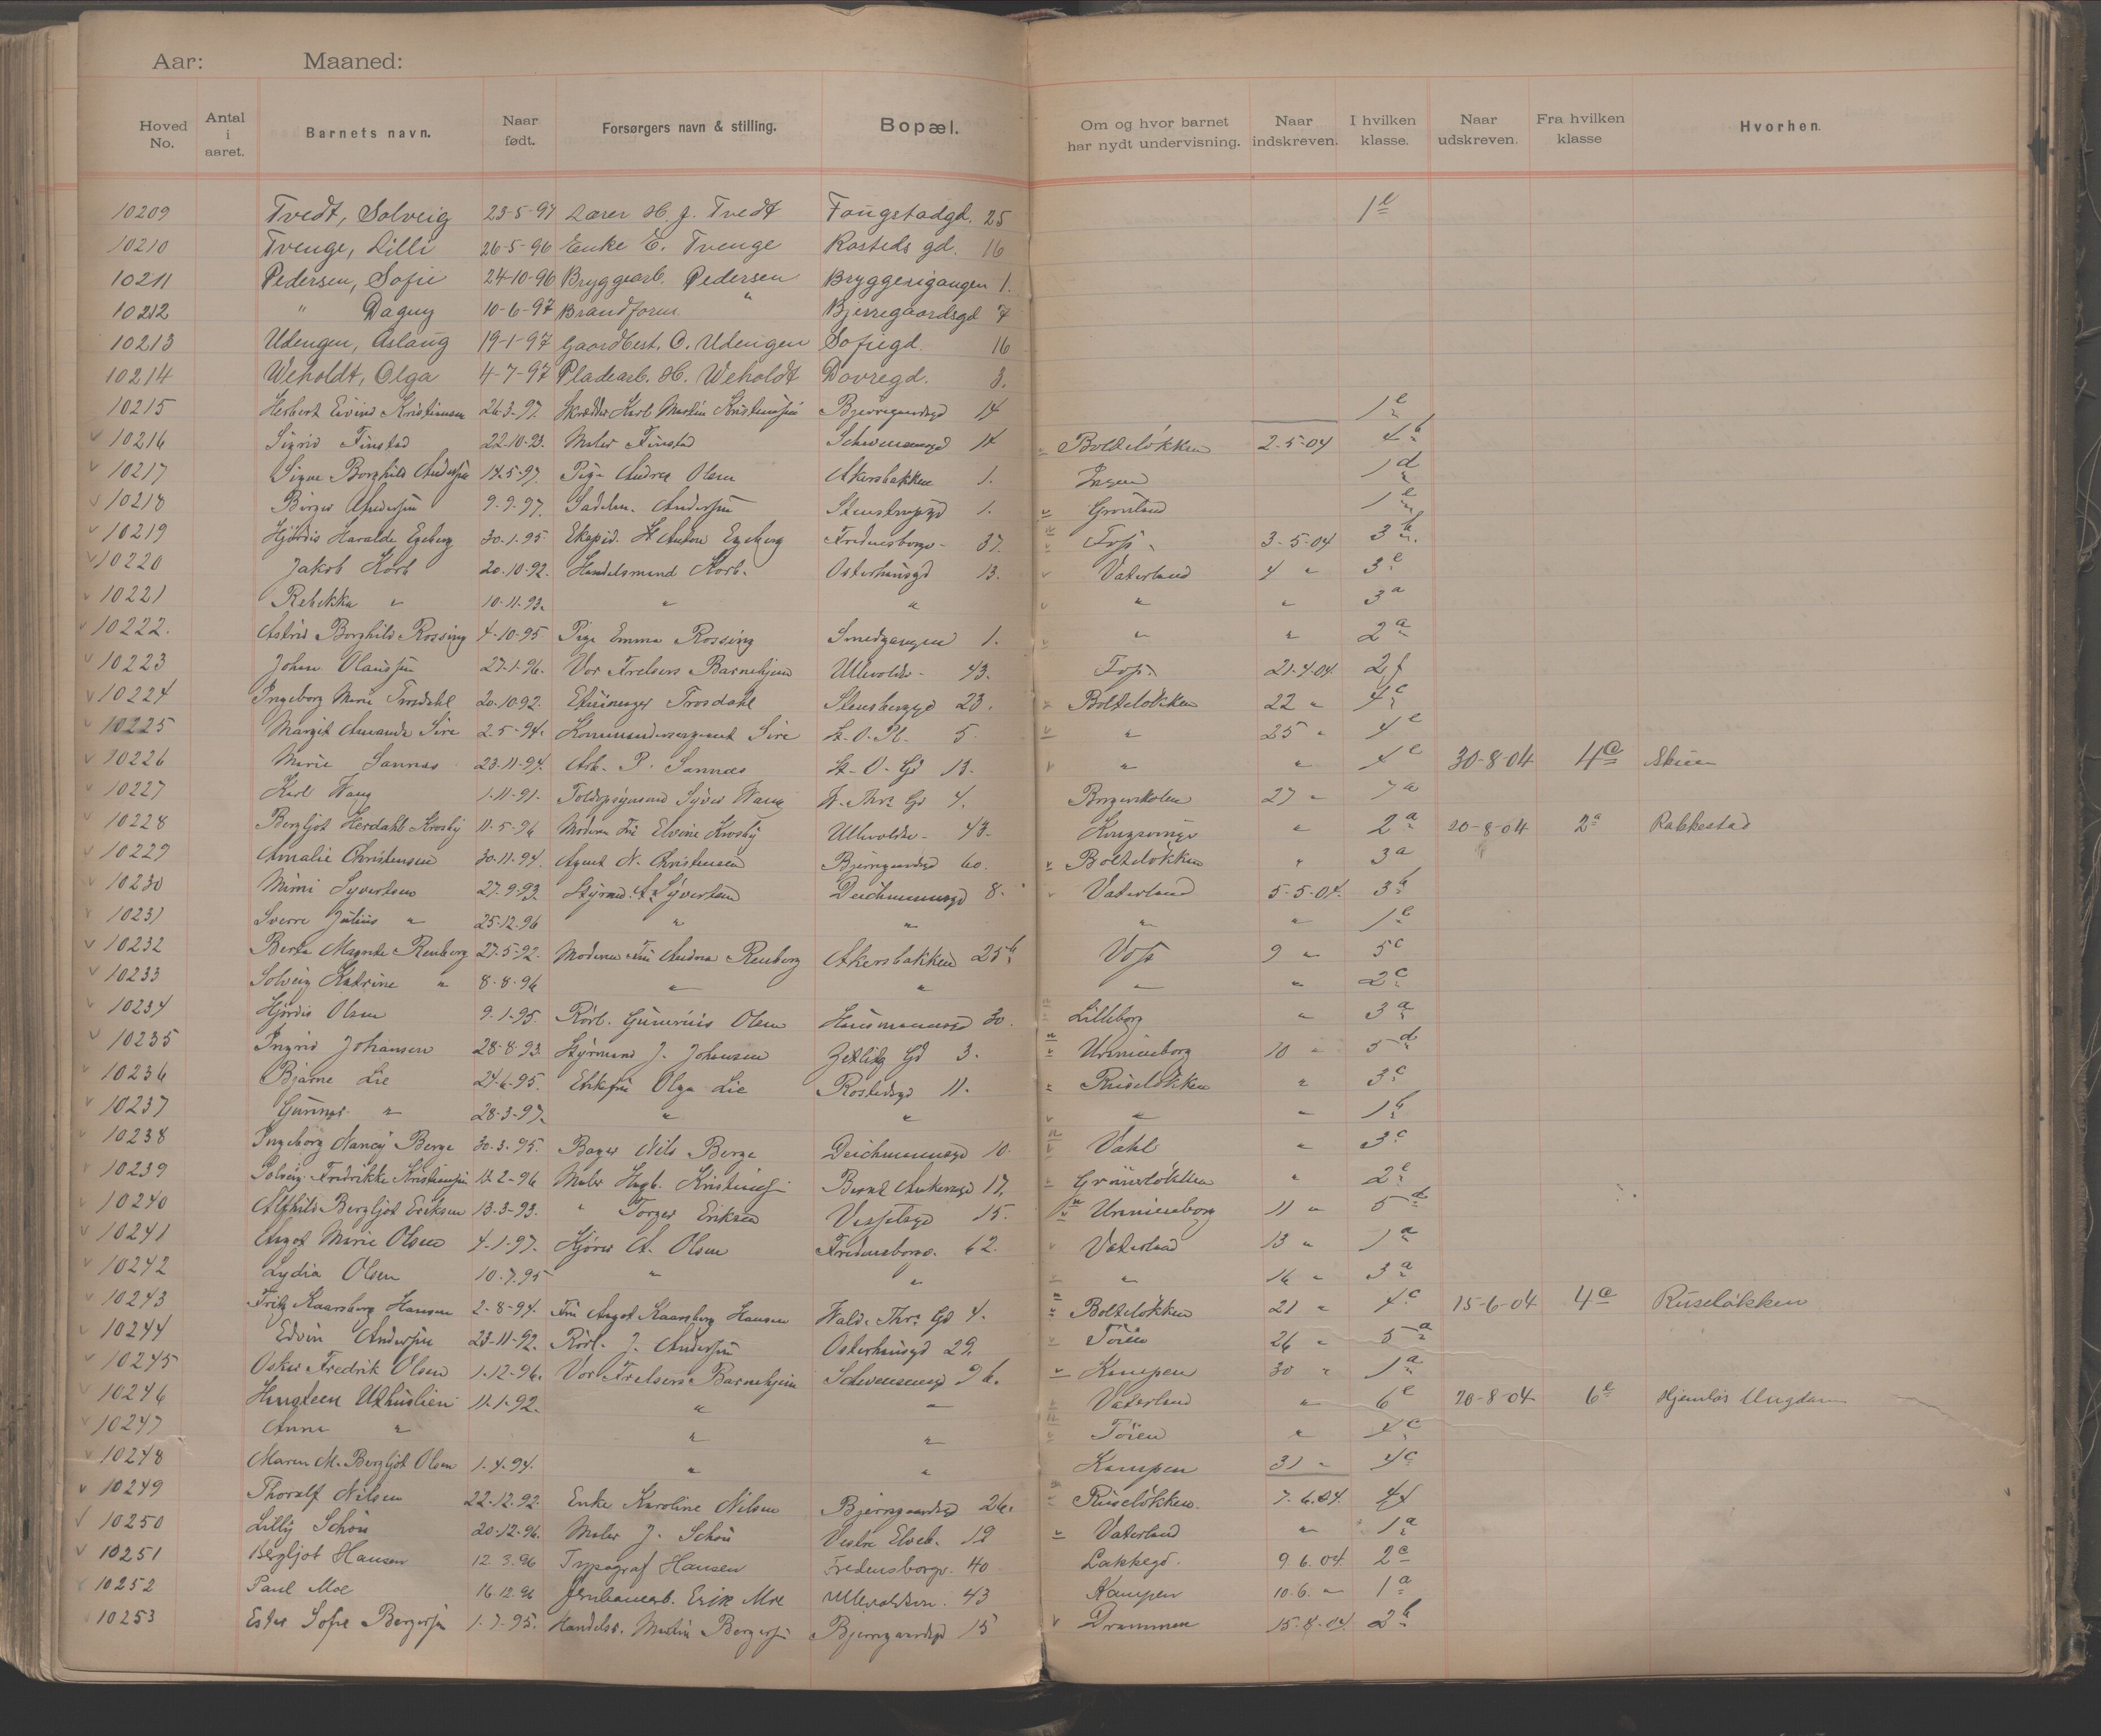 Aar: Maaned:
Hoved No. Antal i aaret. Barnets navn. Naar født. Forsørgers navn & stilling. Bopæl. Om og hvor barnet har nydt undervisning. Naar indskreven. I hvilken klasse. Naar udskreven. Fra hvilken klasse Hvorhen.
10209 Tvedt, Solveig 23-5-97 Lærer H. J. Tvedt Fougstadgd. 25 1e
10210 Tvenge, Lilli 26-5-96 Enke E. Tvenge Rosteds gd. 16
10211 Pedersen, Sofie 24-10-96 Bryggearb. Pedersen Bryggerigangen 1.
10212 " Dagny 10-6-97 Brandform. " Bjerregaardsgd 7
10213 Udengen, Aslaug 19-1-97 Gaardbest. O. Udengen Sofiegd. 16
10214 Weholdt, Olga 4-7-97 Pladearb. H. Weholdt Dovregd. 3.
10215 Herbert Eivind Kristiansen 26-3-97. Skrædder Karl Martin Kristiansen Bjerregaardsgd 14 1e
v 10216 Sigrid Finstad 22-10-93. Maler Finstad Schwensensgd 14 Bolteløkken 2-5-04 4b
v 10217 Signe Borghild Andersen 14-5-97. Pige Andrea Olsen Akersbakken 1. Ingen 1d
v 10218 Birger Andersen 9-9-97. Sadelm. Andersen Stenstrupgd 1. v Grønland 1e
v 10219 Hjørdis Haralde Egeberg 30-1-95 Ekspid. Anton Egeberg Fredensborgv- 37. v Foss 3-5-04 3b
v 10220 Jakob Korb 20-10-92. Handelsmand Korb. Osterhausgd 13. v Vaterland 4 " 3e
v 10221 Rebekka " 10-11-93. " " v " " 3a
v 10222. Astrid Borghild Rossing 4-10-95 Pige Emma Rossing Smedgangen 1. v " " 2a
v 10223 Johan Olaussen 27-1-96. Vor Frelsers Barnehjem Ullevoldsv- 43. Foss. 21-4-04 2f
v 10224 Ingeborg Marie Trosdahl 20-10-92. Trosdahl Stensberggd 23. v Bolteløkken 22 " 4c
v 10225 Margit Amanda Sire 2-5-94. Sire St. O. Pl. 5. v " 25 " 4e
v 10226 Marie Sannæs 23-11-94. Arb. P. Sannæs St. O. Gd 13. v " " 4e 30-8-04 4e Skien
v 10227 Karl Wang 1-11-91. Toldopsynsmd Syver Wang W. Thr. Gd 4. Borgerskolen 27 " 7a
v 10228 Bergljot Herdahl Krosby 11-5-96 Moderen Fru Elvine Krosby Ullevoldsv- 43. Kongsvinger " 2a 20-8-04 2a Rakkestad
v 10229 Amalie Christensen 30-11-94. Agent N. Christensen Bjerregaardsgd 60. v Bolteløkken " 3a
v 10230 Mimi Syvertsen 27-9-93. Styrmd. A. Syvertsen Deichmannsgd 8. v Vaterland 5-5-04. 3b
v 10231 Sverre Julius " 25-12-96 " " " " 1e
v 10232 Berta Magnete Renberg 27-5-92. Moderen Fru Andrea Renberg Akersbakken 25b Voss 9 " 5c
v 10233 Solveig Katrine " 8-8-96 " " " " 2c
v 10234 Hjørdis Olsen 9-1-95. Rørl. Gunerius Olsen Hausmannsgd 30. Lilleborg " 3a
v 10235 Ingrid Johansen 28-8-93. Styrmand J. Johansen Zetlitz Gd 3. v Uranienborg 10 " 5d
v 10236 Bjarne Lie 24-6-95. Olga Lie Rostedsgd 11. Ruseløkken " 3c
v 10237 Gunnar " 28-3-97. " " v " " 1b
v 10238 Ingeborg Nancy Berge 30-3-95. Bager Nils Berge Deichmannsgd 10. v Vahl " 3c
v 10239 Solveig Fredrikke Kristiansen 12-2-96 Maler Kristiansen Bernt Ankersgd 17. Grünerløkken " 2e
v 10240 Alfhild Bergljot Eriksen 13-3-93. " Torger Eriksen Vesselsgd 15. v Uranienborg 11 " 5d
v 10241 Aagot Marie Olsen 4-1-97. Kjører A. Olsen Fredensborgv. 62. v Vaterland 13 " 1a
v 10242 Lydia Olsen 10-7-95 " " " 16 " 3a
v 10243 Fritz Kaarsberg Hansen 2-8-94. Fru Aagot Kaarsberg Hansen Wald. Thr. Gd 4. Bolteløkken 21 " 4c 15-6-04 4c Ruseløkken
v 10244 Edvin Andersen 23-11-92. Rørl. J. Andersen Osterhausgd 29. v Tøien 26 " 5a
v 10245 Oskar Fredrik Olsen 1-12-96. Vor Frelsers Barnehjem Schwensensgd 96. v Kampen 30 " 1a
v 10246 Uthuslien 11-1-92. " " Vaterland " 6e 20-8-04 6e Hjemløs Ungdom
v 10247 Anna " " " Tøien " 4c
v 10248 Maren M. Bergljot Olsen 1-4-94. " " Kampen 31 " 4c
v 10249 Thoralf Nilsen 22-12-92. Enke Karoline Nilsen Bjerregaardsgd 26. Ruseløkken. 7-6.04. 4f
v 10250 Lilly Schøn 20-12-96. Maler J. Schøn Vestre Elveb. 12 v Vaterland " 1a
v 10251 Bergljot Hansen 12.3.96 Typograf Hansen Fredensborgv. 40 Lakkegd. 9.6.04 2c
v 10252 Paul Moe 16.12.96 Jernbanearb. Erik Moe Ullevoldsvn. 43 Kampen 10.6. " 1a
10253 Ester Sofie Bergersen 1-7-95. Handelsr. Martin Bergersen Bjerregaardsgd 15 v Drammen 15-8-04. 2b